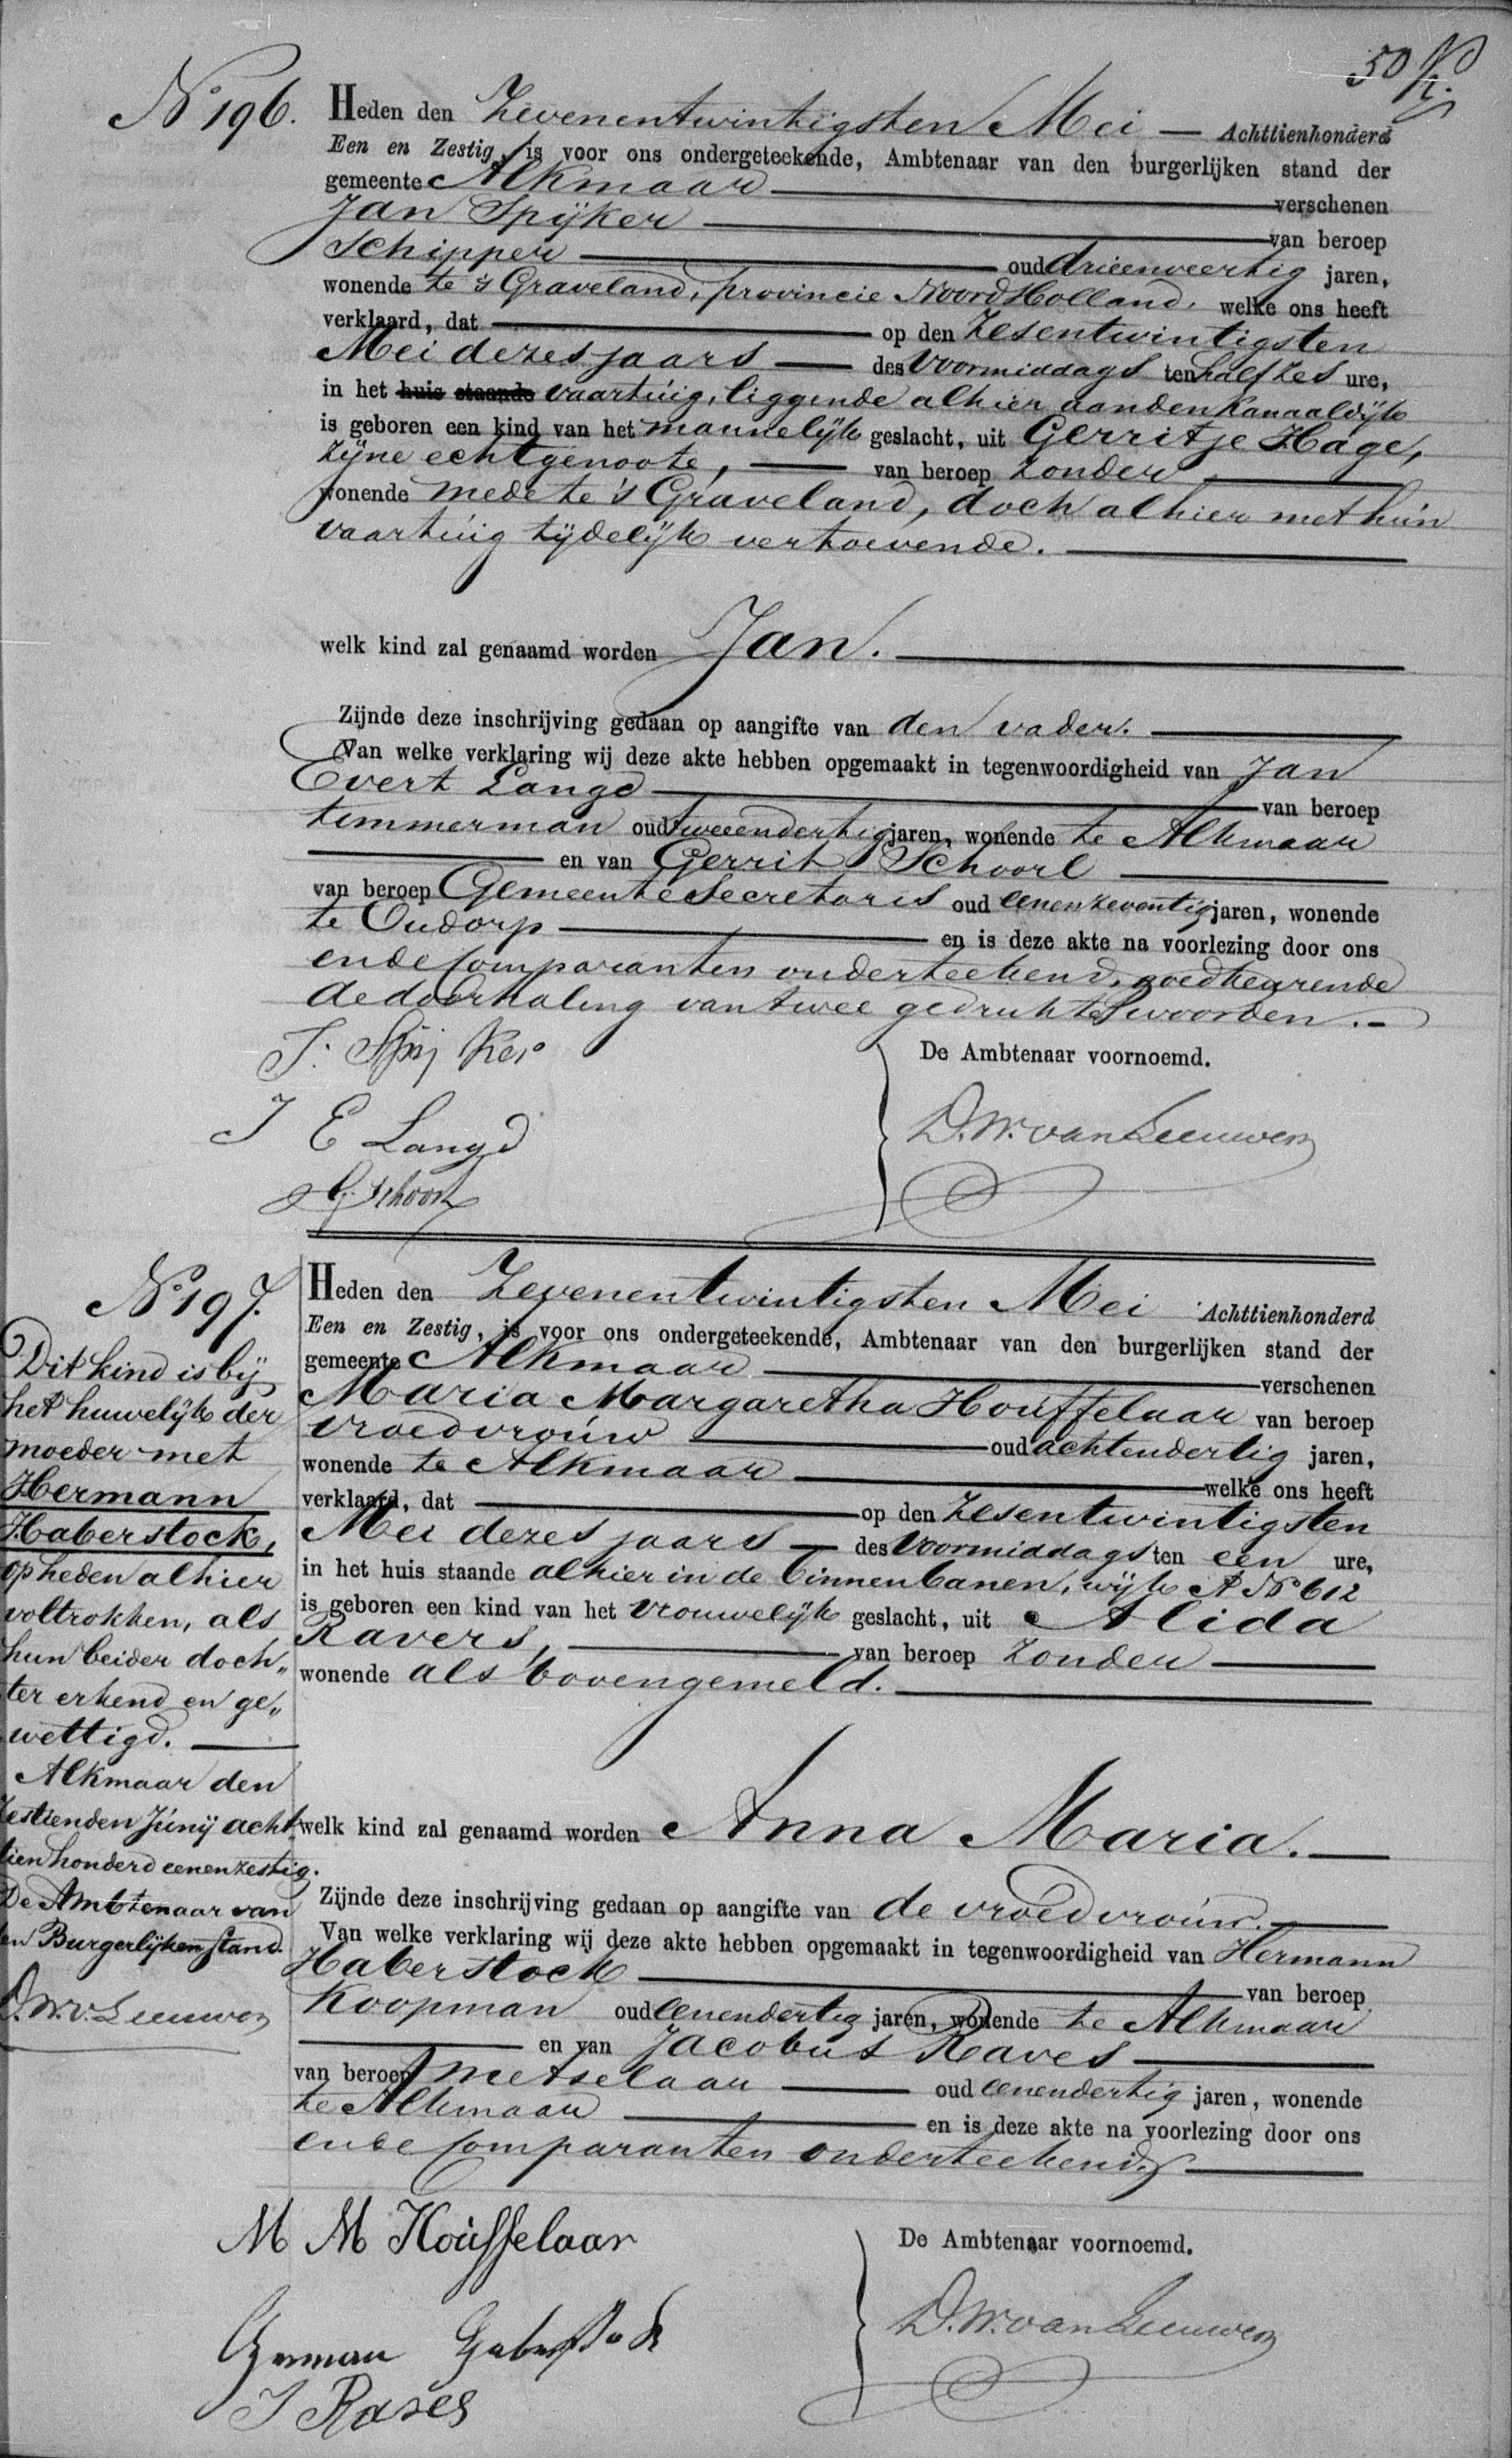 50
No 196.
Heden den Zevenentwintigsten Mei — Achttienhonderd
Een en Zestig, is voor ons ondergeteekende, Ambtenaar van den burgerlijken stand der
gemeente Alkmaar verschenen
Jan Spijker van beroep
Schipper oud drieenveertig jaren,
wonende te 's Graveland, provincie Noord Holland, welke ons heeft
verklaard, dat op den Zesentwintigsten
Mei dezes jaars — des Voormiddags ten half zes ure,
in het huis staande vaartuig, liggende alhier aan den Kanaaldijk
is geboren een kind van het mannelijk geslacht, uit Gerritje Hage,
Zijne echtgenoote, — van beroep Zonder
wonende mede te 's Graveland, doch alhier met hun
vaartuig tijdelijk vertoevende.
welk kind zal genaamd worden Jan.
Zijnde deze inschrijving gedaan op aangifte van den vader.
Van welke verklaring wij deze akte hebben opgemaakt in tegenwoordigheid van Jan
Evert Langd van beroep
timmerman oud tweeendertig jaren, wonende te Alkmaar
en van Gerrit Schoorl
van beroep Gemeente Secretaris oud eenenzeventig jaren, wonende
te Oudorp en is deze akte na voorlezing door ons
en de Comparanten onderteekend, goedkeurende
de doorhaling van twee gedrukte woorden.—
J. Spijker
De Ambtenaar voornoemd.
J E Langd
D. W. van Leeuwen
G. Schoorl
No 197.
Heden den Zevenentwintigsten Mei Achttienhonderd
Een en Zestig, is voor ons ondergeteekende, Ambtenaar van den burgerlijken stand der
gemeente Alkmaar verschenen
Maria Margaretha Houffelaar van beroep
vroedvrouw oud achtendertig jaren,
wonende te Alkmaar welke ons heeft
verklaard, dat op den Zesentwintigsten
Mei dezes jaars — des Voormiddags ten een ure,
in het huis staande alhier in de Binnenbanen, wijk A No 612
is geboren een kind van het vrouwelijk geslacht, uit Alida
Ravers, van beroep Zonder
wonende als bovengemeld.
welk kind zal genaamd worden Anna Maria.—
Zijnde deze inschrijving gedaan op aangifte van de vroedvrouw.
Van welke verklaring wij deze akte hebben opgemaakt in tegenwoordigheid van Hermann
Haberstock van beroep
Koopman oud eenendertig jaren, wonende te Alkmaar
en van Jacobus Raves
van beroep metselaar oud eenendertig jaren, wonende
te Alkmaar en is deze akte na voorlezing door ons
en de Comparanten onderteekend.
Dit kind is bij
het huwelijk der
moeder met
Hermann
Haberstock,
op heden alhier
voltrokken, als
hun beider doch„
ter erkend en ge„
wettigd.
Alkmaar den
zestienden Junij acht
tienhonderd eenenzestig.
De Ambtenaar van
den Burgerlijken Stand.
D. W. v. Leeuwen
M M Houffelaar
De Ambtenaar voornoemd.
German Haberstock
D. W. van Leeuwen
J Raves